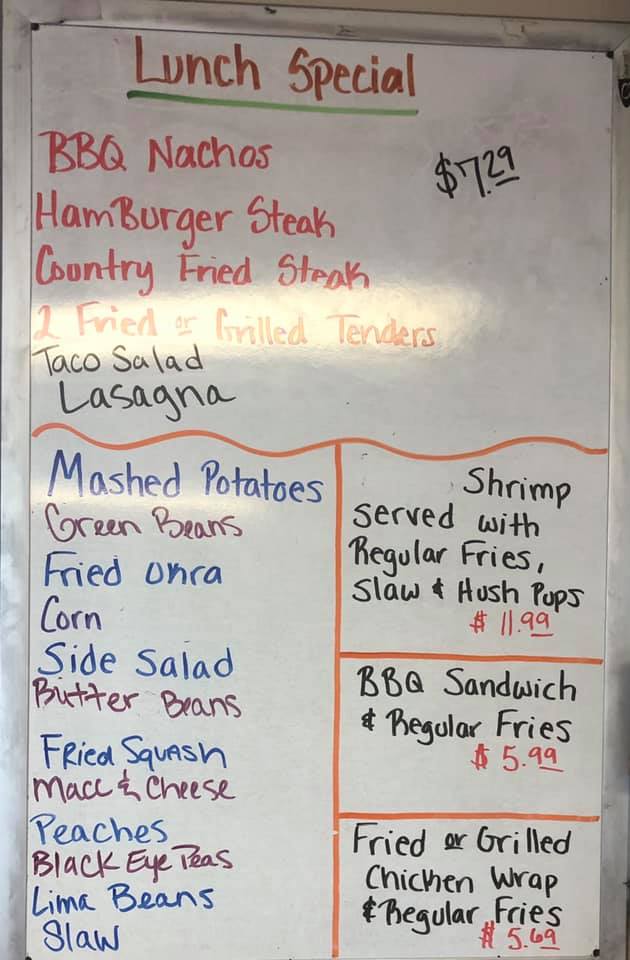 Lunch Special
BBQ Nachos
$7.29
HamBurger Steak
Country Fried Steak
2 Fried or Grilled Tenders
Taco Salad
Lasagna
Mashed Potatoes
Green Beans
Fried Okra
Corn
Side Salad
Butter Beans
Fried Squash
Macc & Cheese
Peaches
Black Eye Peas
Lima Beans
Slaw
Shrimp
Served with
Regular Fries,
Slaw & Hush Pups
$ 11.99
BBQ Sandwich
& Regular Fries
$ 5.99
Fried or Grilled
Chicken Wrap
& Regular Fries
$ 5.69